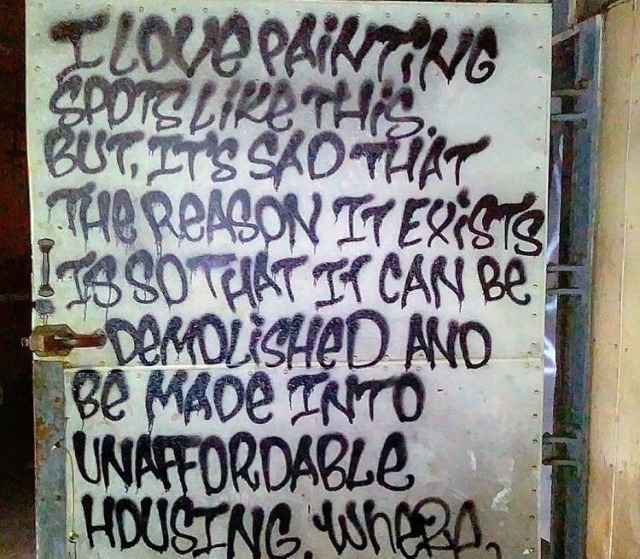 I LOVE PAINTING
SPOTS LIKE THIS.
BUT, IT'S SAD THAT
THE REASON IT EXISTS
IS SO THAT IT CAN BE
DEMOLISHED AND
BE MADE INTO
UNAFFORDABLE
HOUSING. WHERE